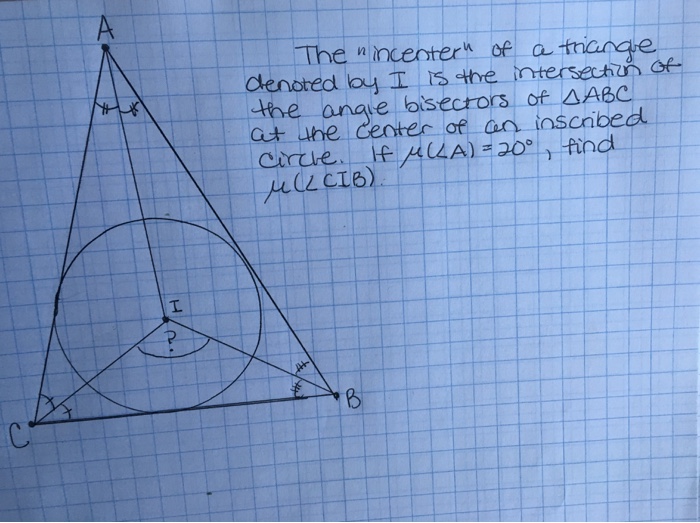 A
The "incenter" of a triangle
denoted by I is the intersection of
the angle bisectors of △ABC
at the center of an inscribed
circle. If μ(∠A) = 20°, find
μ(∠CIB).
I
?
B
C